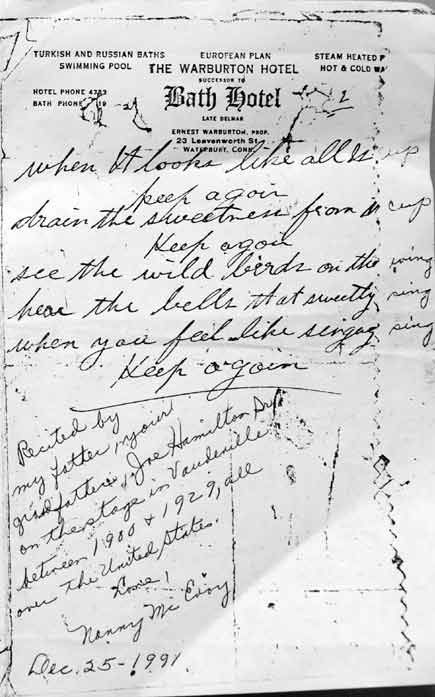 TURKISH AND RUSSIAN BATHS
SWIMMING POOL
EUROPEAN PLAN
STEAM HEATED
HOT & COLD WA
THE WARBURTON HOTEL
SUCCESSOR TO
HOTEL PHONE 4383
BATH PHONE
Bath Hotel
LATE DELMAR
ERNEST WARBURTON, PROP.
23 Leavenworth St.
WATERBURY, CONN.
2
when it looks like all is up
keep agoin
drain the sweetness from cup
Keep agoin
see the wild birds on the wing
hear the bells that sweetly sing
when you feel like singag sing
Keep agoin
Recited by
my father, your
grandfather, Joe Hamilton Sr.
on the stage in Vaudeville
between 1900 & 1929, all
over the United States.
Love,
Nanny Mc Evoy
Dec. 25-1991